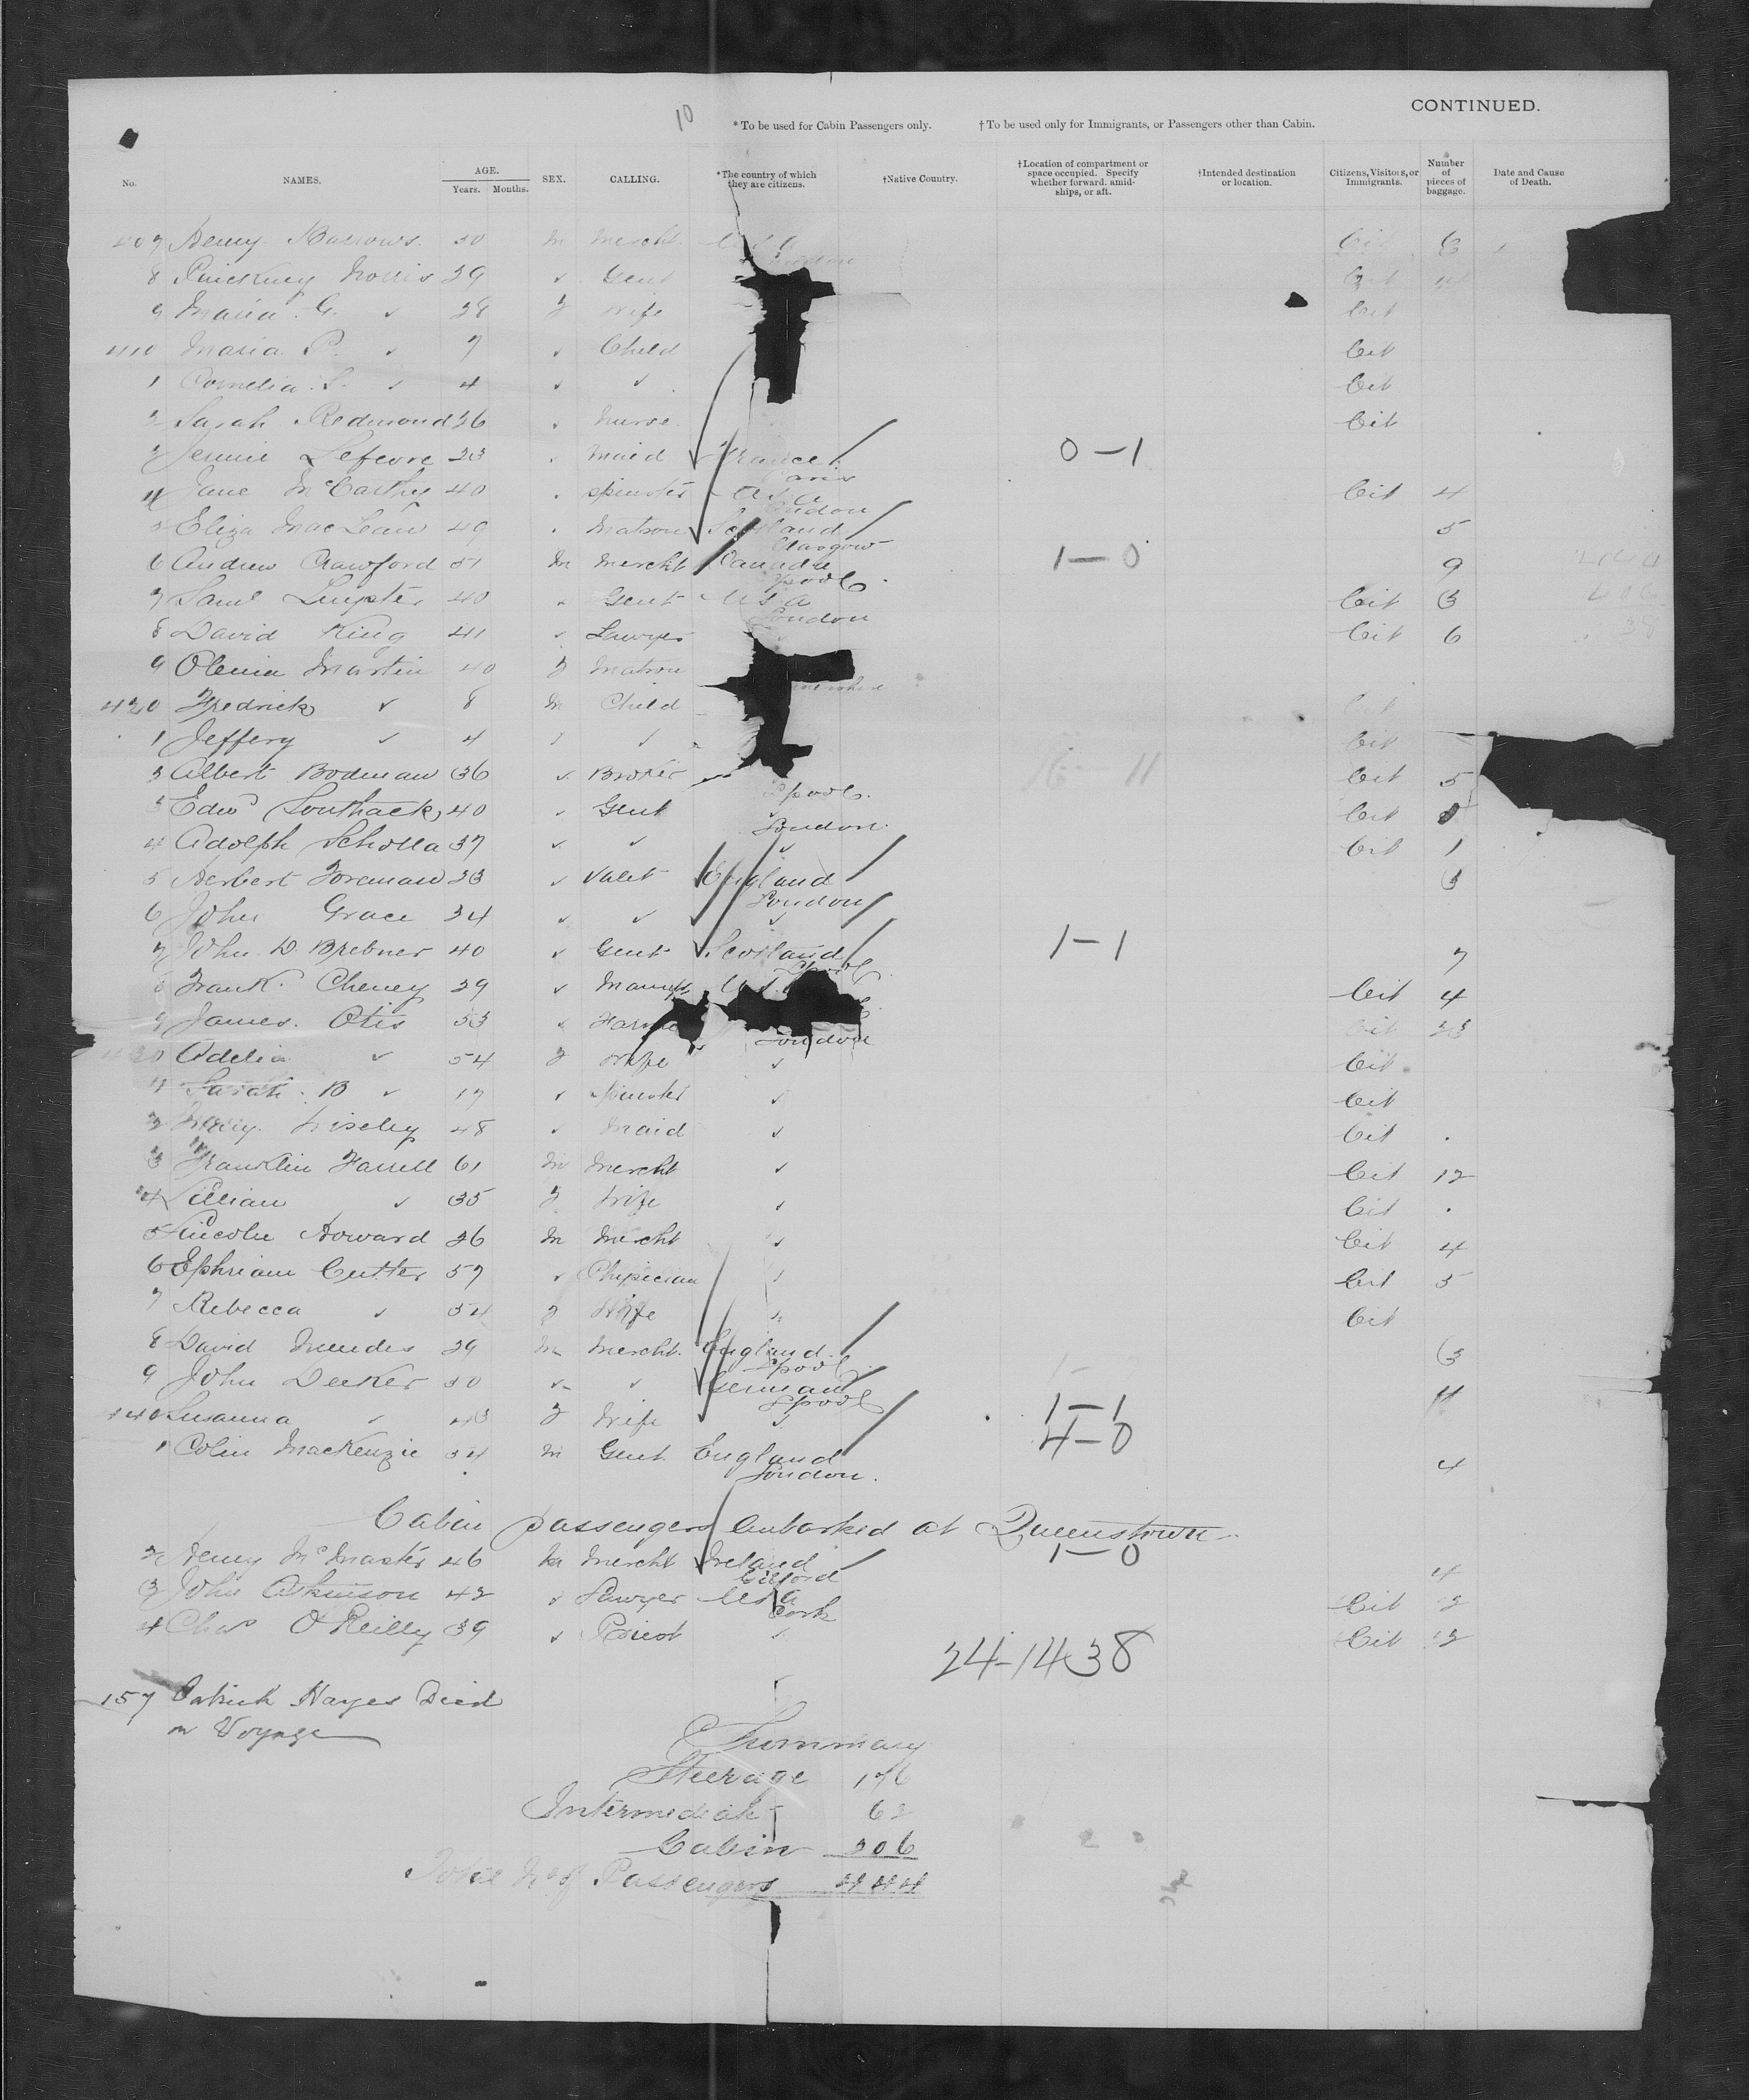 CONTINUED.
10
* To be used for Cabin Passengers only. † To be used only for Immigrants, or Passengers other than Cabin.
No. NAMES. AGE. Years. Months. SEX. CALLING. *The country of which they are citizens. †Native Country. †Location of compartment or space occupied. Specify whether forward, amidships, or aft. †Intended destination or location. Citizens, Visitors, or Immigrants. Number of pieces of baggage. Date and Cause of Death.
407 Henry Barrows. 30 m Mercht. U S A Cit 6
8 Pinckney Norris 29 ✓ Gent Cit
9 Maria G. ✓ 28 f Wife Cit
410 Maria P. ✓ 7 ✓ Child Cit
1 Cornelia S. ✓ 4 ✓ ✓ Cit
2 Sarah Redmond 26 ✓ Nurse Cit
3 Jennie Lefevre 23 . Maid France Paris 0-1
4 Jane McCarthy 40 . Spinster U S A London Cit 4
5 Eliza MacLean 49 . Matron Scotland Glasgow 5
6 Andrew Crawford 51 m Mercht Canada Lpool 1-0 9
7 Saml 40 Gent U S A London Cit 3
8 David King 41 ✓ Lawyer ✓ Cit 6
9 Martin 40 f Matron
420 Fredrick ✓ 8 m Child Cit
1 Jeffery ✓ 4 ✓ Cit
2 Albert Bodman 36 ✓ Broker Lpool. Cit 5
3 Edwd Southack 40 ✓ Gent London. Cit
4 Adolph Scholla 37 ✓ ✓ ✓ Cit 1
5 Herbert Foreman 23 ✓ Valet England London 3
6 John Grace 34 ✓ ✓ ✓
7 John D. Brebner 40 ✓ Gent Scotland Lpool 1-1 7
8 Frank Cheney 29 ✓ U.S. Cit 4
9 James Otis 53 London Cit 23
430 Adelia ✓ 54 f Wife ✓ Cit
1 Sarah B ✓ 17 ✓ Spinster ✓ Cit
2 Mary 48 ✓ Maid ✓ Cit .
3 Franklin Farrell 61 m Mercht ✓ Cit 12
4 Lillian ✓ 35 f Wife ✓ Cit .
5 Lincoln Howard 26 m Mercht ✓ Cit 4
6 Ephriam Cutter 57 ✓ Phipician ✓ Cit 5
7 Rebecca ✓ 54 f Wife ✓ Cit
8 David Mendes 29 m Mercht. England Lpool 3
9 John Decker 50 ✓ ✓ German Lpool 1-1 4
440 Susanna ✓ 43 f Wife ✓ 4-0
1 Colin MacKenzie 34 m Gent. England London. 4
Cabin passengers Embarked at Queenstown
1-0
2 Henry McMaster 46 m Mercht Ireland Gilford 4
3 John Atkinson 42 ✓ Lawyer U S A Cork Cit 2
4 Chas O'Reilly 39 ✓ Priest ✓ Cit 2
24-1438
157 Patrick Hayes Died
on Voyage
Summary
Steerage 176
Intermediate 62
Cabin 206
Total No of Passengers 444